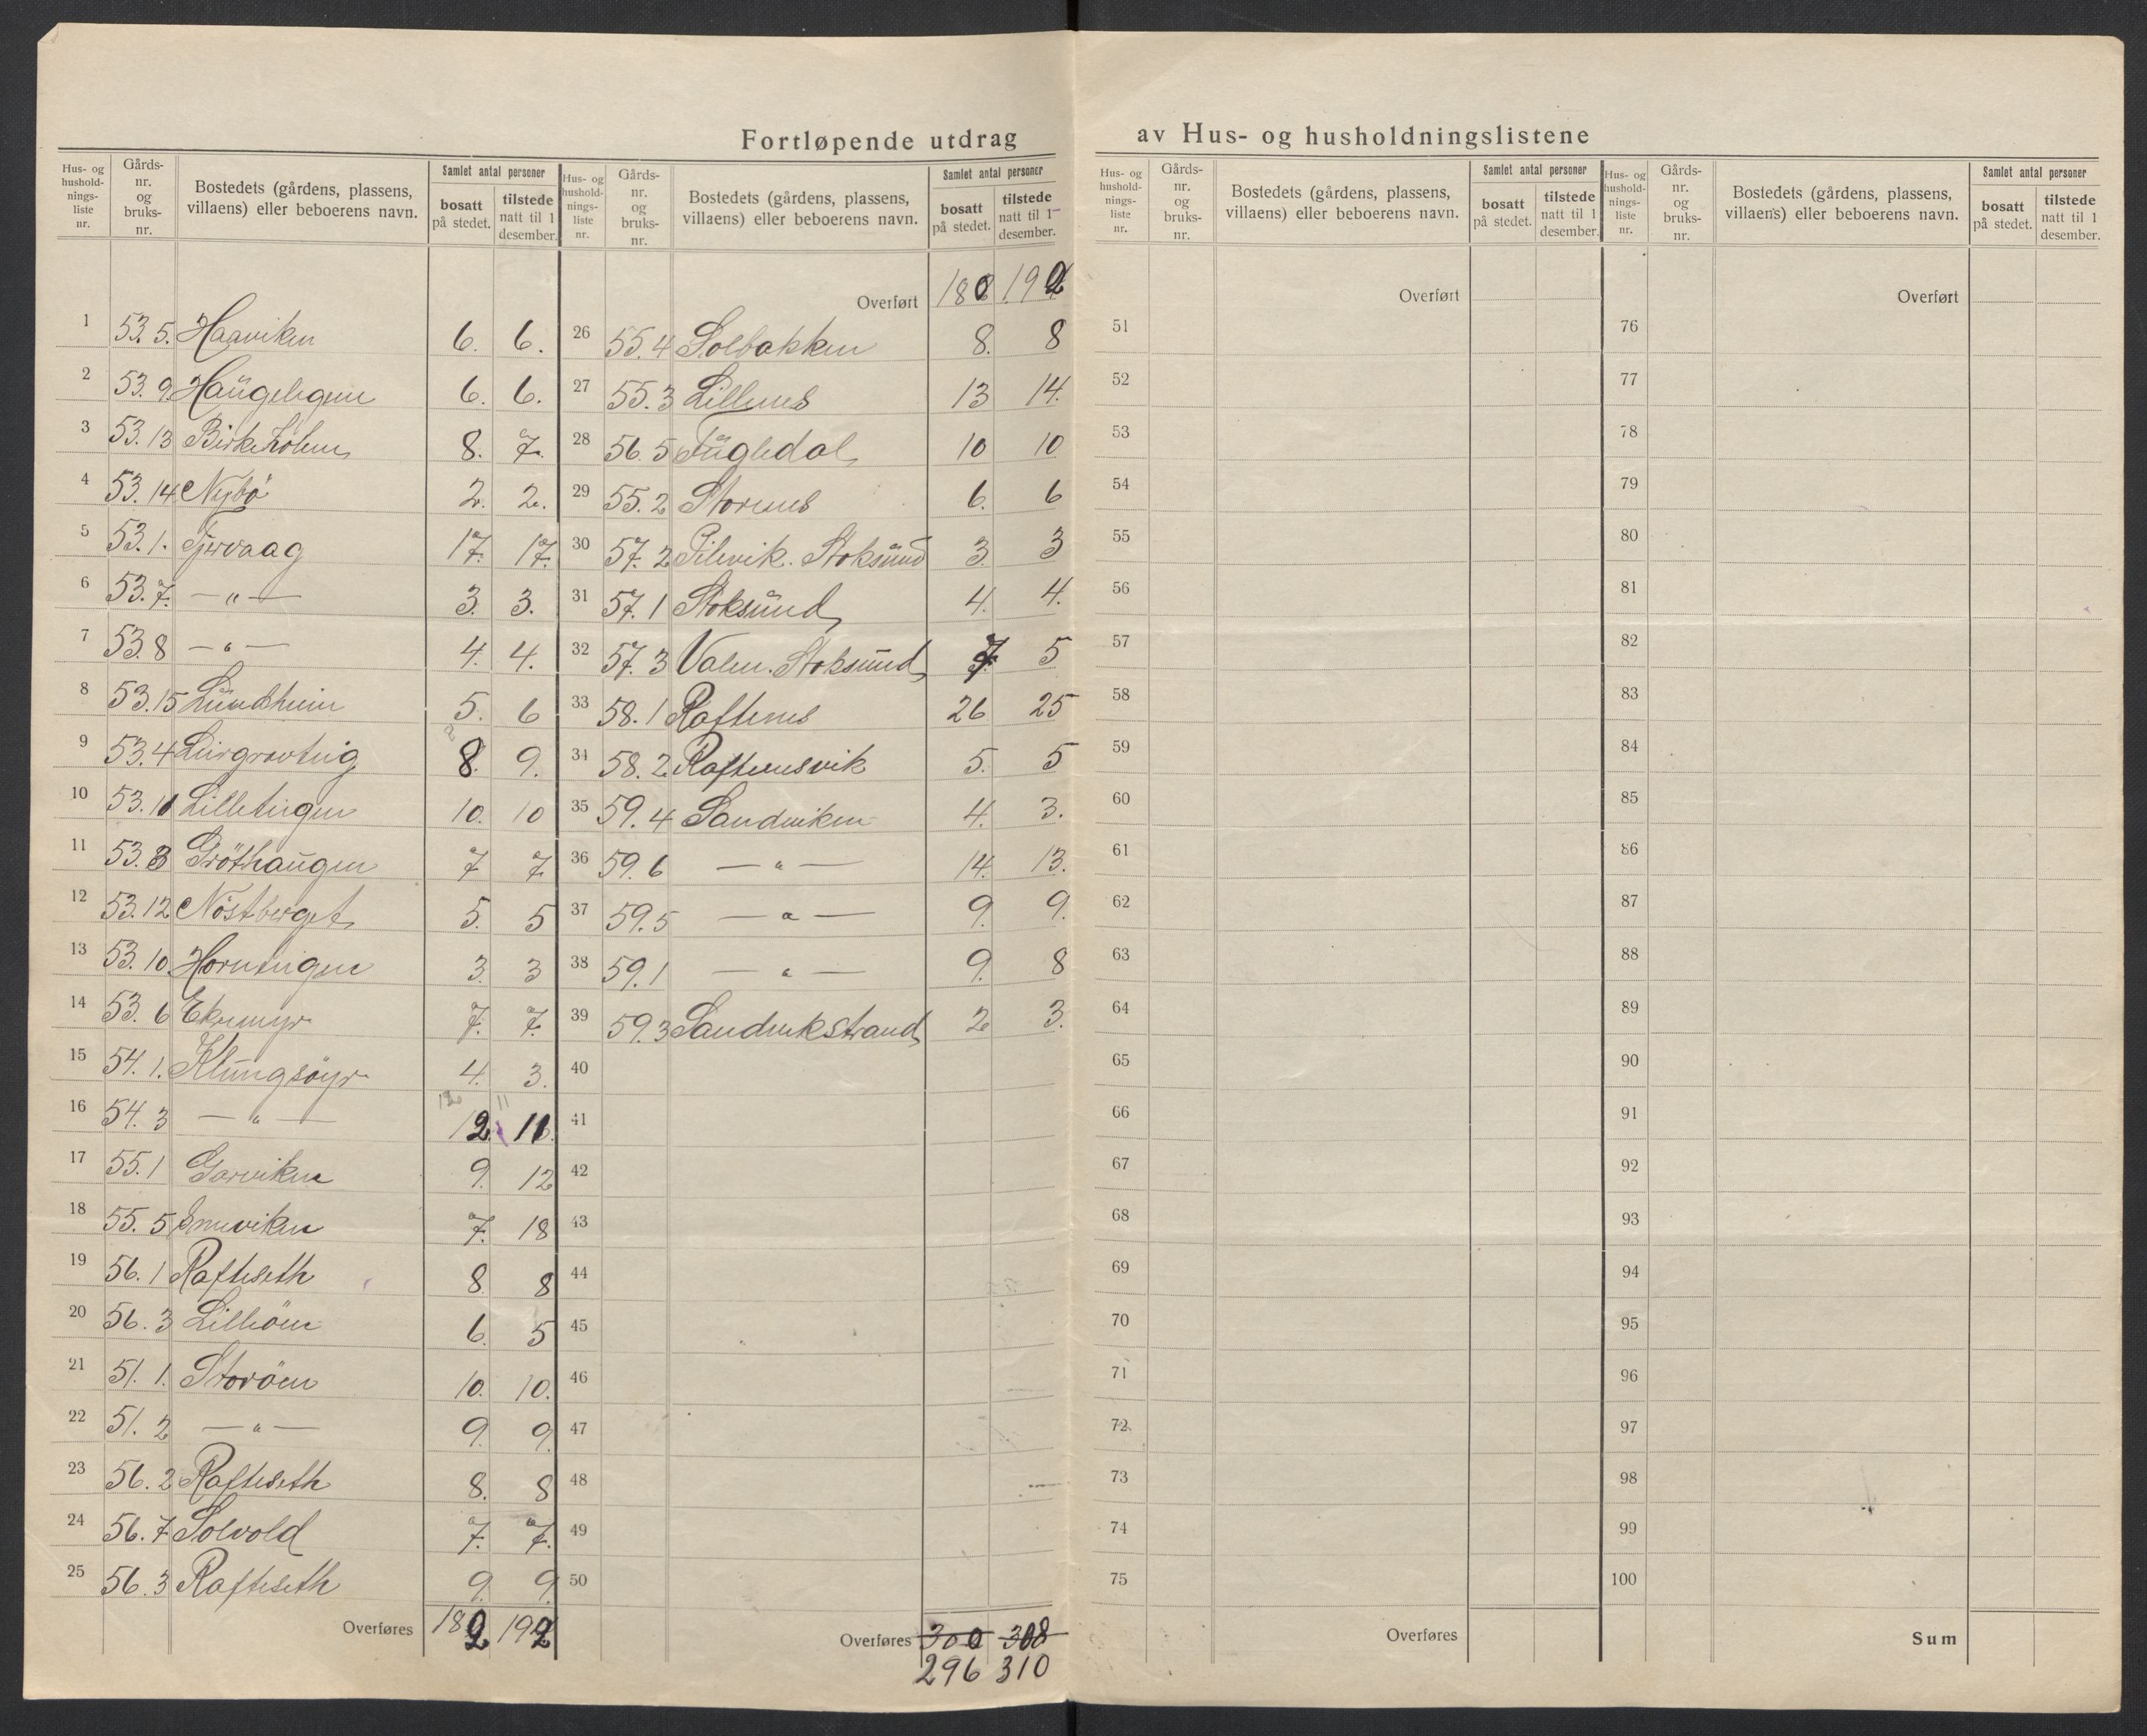 Fortløpende utdrag av Hus- og husholdningslistene
Hus- og hushold-nings-liste nr. | Gårds-nr. og bruks-nr. | Bostedets (gårdens, plassens, villaens) eller beboerens navn. | Samlet antal personer | bosatt på stedet. | tilstede natt til 1 desember.
1 53. 5. Haaviken 6. 6.
2 53. 9. Haugelegen 6. 6.
3 53. 13 Birkeholm 8. 7.
4 53. 14 Nybö 2. 2.
5 53. 1. Tjervaag 17. 17.
6 53. 7. — " — 3. 3.
7 53. 8 — " — 4. 4.
8 53. 15 Lundheim 5. 6
9 53. 4 Leirgrovteig 8. 9.
10 53. 11 Lilleteigen 10. 10
11 53. 3 Gröthaugen 7 7
12 53. 12 Nöstberget 5. 5
13 53. 10. Hornteigen 3. 3
14 53. 6 Ekremyr 7. 7.
15 54. 1. Klungsöyr 4. 3.
16 54. 3 — " — 12. 11.
17 55. 1 Garviken 9. 12
18 55. 5 7. 18
19 56. 1 Rafteseth 8 8
20 56. 3 Lilleöen 6. 5
21 51. 1. Storöen 10. 10.
22 51. 2 — " — 9. 9.
23 56. 2 Rafteseth 8. 8
24 56. 7 Solvold 7. 7.
25 56. 3 Rafteseth 9. 9
Overføres 182 192
Hus- og hushold-nings-liste nr. | Gårds-nr. og bruks-nr. | Bostedets (gårdens, plassens, villaens) eller beboerens navn. | Samlet antal personer | bosatt på stedet. | tilstede natt til 1 desember.
Overført 180 192
26 55. 4 Solbakken 8. 8
27 55. 3 Lillenes 13 14.
28 56. 5 Fugledal 10 10
29 55. 2 Stornes 6. 6
30 57. 2 Pilevik. Stoksund 3. 3
31 57. 1 Stoksund 4. 4.
32 57. 3 Valen. Stoksund 7. 5
33 58. 1 Raftenes 26 25
34 58. 2 Raftenesvik 5. 5
35 59. 4 Sandviken 4. 3.
36 59. 6 — " — 14. 13.
37 59. 5 — " — 9. 9.
38 59. 1 — " — 9. 8
39 59. 3 Sandvikstrand 2 3.
40
41
42
43
44
45
46
47
48
49
50
Overføres 300 308
296 310
Hus- og hushold-nings-liste nr. | Gårds-nr. og bruks-nr. | Bostedets (gårdens, plassens, villaens) eller beboerens navn. | Samlet antal personer | bosatt på stedet. | tilstede natt til 1 desember.
Overført
51
52
53
54
55
56
57
58
59
60
61
62
63
64
65
66
67
68
69
70
71
72
73
74
75
Overføres
Hus- og hushold-nings-liste nr. | Gårds-nr. og bruks-nr. | Bostedets (gårdens, plassens, villaens) eller beboerens navn. | Samlet antal personer | bosatt på stedet. | tilstede natt til 1 desember.
Overført
76
77
78
79
80
81
82
83
84
85
86
87
88
89
90
91
92
93
94
95
96
97
98
99
100
Sum